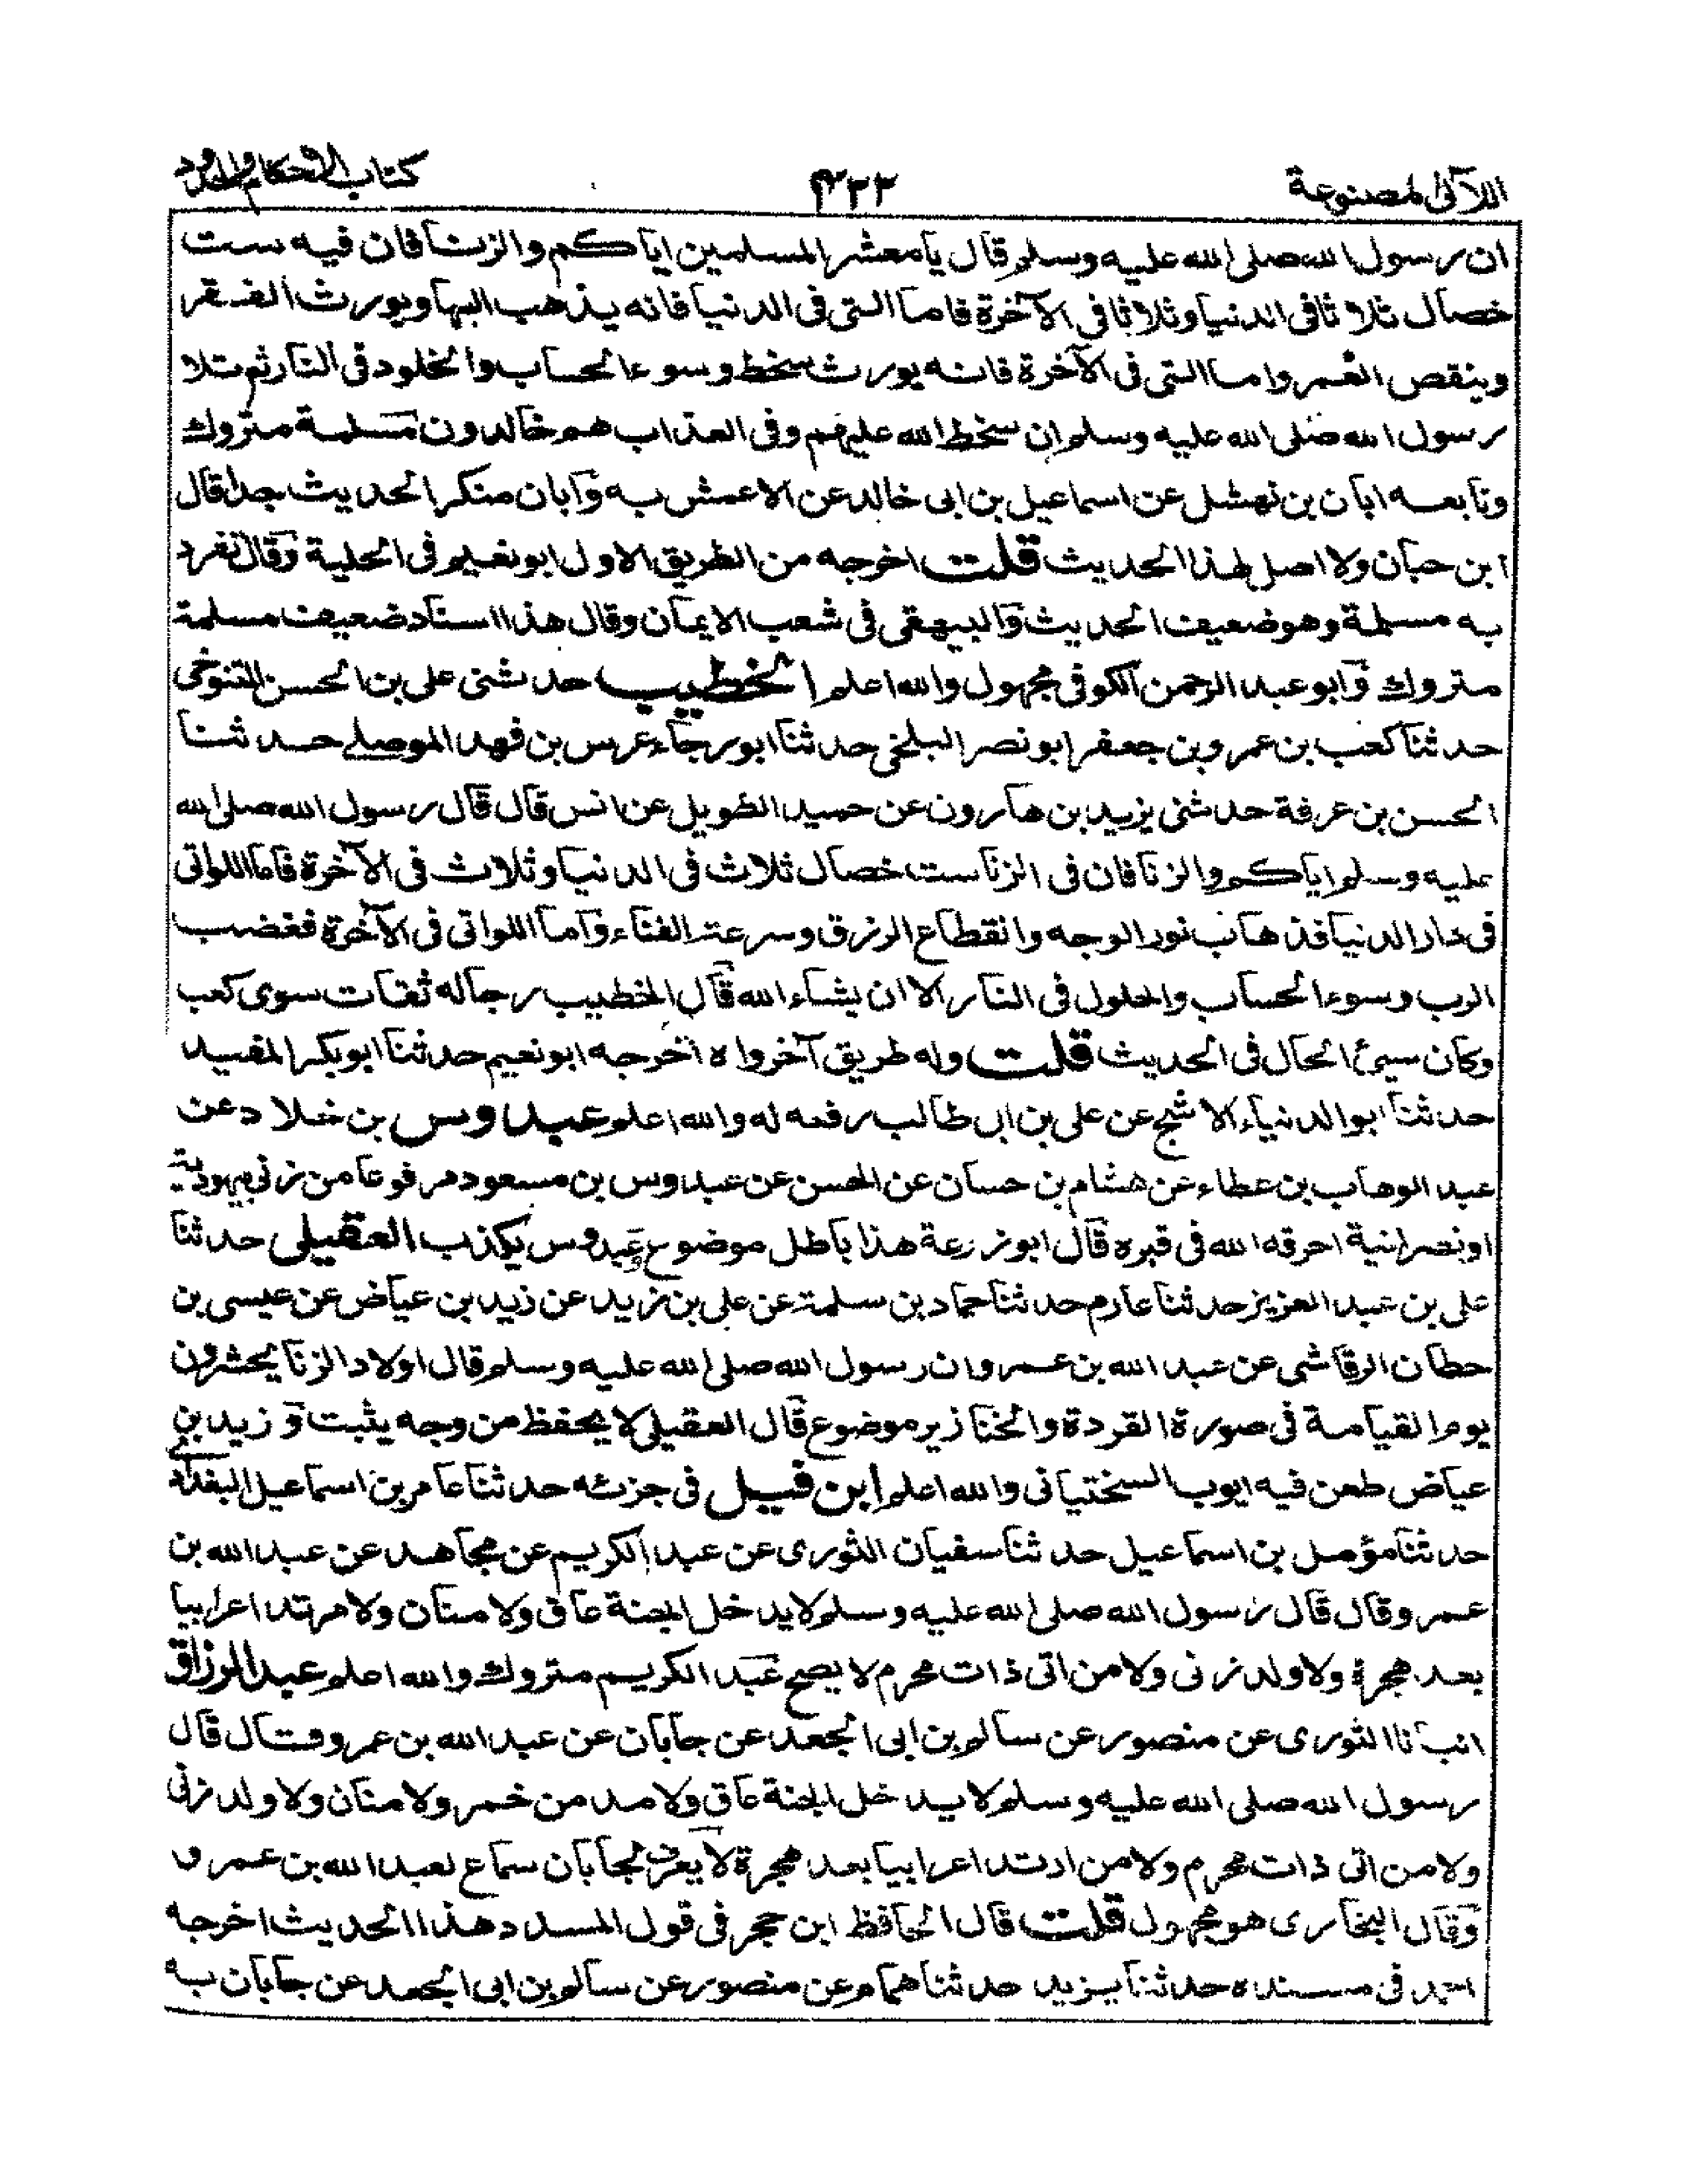 اللآلئ المصنوعة
كتاب الاحكام والحدود
ان رسول الله صلى الله عليه وسلم قال يا معشر المسلمين اياكم والزنا فان فيه ست
خصال ثلاثا فى الدنيا وثلاثا فى الآخرة فاما التى فى الدنيا فانه يذهب البها ويورث الفقر
وينقص العمر واما التى فى الآخرة فانه يورث سخط وسوء الحساب والخلود فى النار ثم تلا
رسول الله صلى الله عليه وسلم ان سخط الله عليهم وفى العذاب هم خالدون مسلمة متروك
وتابعه ابان بن نهشل عن اسماعيل بن ابى خالد عن الاعمش به وآبان منكر الحديث جدا قال
ابن حبان ولا اصل لهذا الحديث قلت اخرجه من الطريق الاول ابو نعيم فى الحلية وقال تفرد
به مسلمة وهو ضعيف الحديث والبيهقى فى شعب الايمان وقال هذا اسناد ضعيف مسلمة
متروك وآبو عبد الرحمن الكوفى مجهول والله اعلم الخطيب حدثنى على بن الحسن التنوخى
حدثنا كعب بن عمرو بن جعفر ابو نصر البلخى حدثنا ابو رجاء عريس بن فهد الموصلے حدثنا
الحسن بن عرفة حدثنى يزيد بن هارون عن حميد الطويل عن انس قال قال رسول الله صلى الله
عليه وسلم اياكم والزنا فان فى الزنا ست خصال ثلاث فى الدنيا وثلاث فى الآخرة فاما اللواتى
فى دار الدنيا فذهاب نور الوجه وانقطاع الرزق وسرعة الفناء وآما اللواتى فى الآخرة فغضب
الرب وسوء الحساب والحلول فى النار الا ان يشاء الله قال الخطيب رجاله ثقات سوى كعب
وكان سيئ الحال فى الحديث قلت وله طريق آخر واه اخرجه ابو نعيم حدثنا ابو بكر المفيد
حدثنا ابو الدنياء الاشج عن على بن ابى طالب رفعه له والله اعلم عبدوس بن خلاد عن
عبد الوهاب بن عطاء عن هشام بن حسان عن الحسن عن عبدوس بن مسعود مرفوعا من زنى بيهودية
او نصرانية احرقه الله فى قبره قال ابو زرعة هذا باطل موضوع عبدوس يكذب العقيلى حدثنا
على بن عبد العزيز حدثنا عارم حدثنا حماد بن سلمة عن على بن زيد عن زيد بن عياض عن عيسى بن
حطان الرقاشى عن عبد الله بن عمرو ان رسول الله صلى الله عليه وسلم قال اولاد الزنا يحشرون
يوم القيامة فى صورة القردة والخنازير موضوع قال العقيلى لا يحفظ من وجه يثبت و زيد بن
عياض طعن فيه ايوب السختيانى والله اعلم ابن فيل فى جزئه حدثنا عامر بن اسماعيل البغدادى
حدثنا مؤمل بن اسماعيل حدثنا سفيان الثورى عن عبد الكريم عن مجاهد عن عبد الله بن
عمرو قال قال رسول الله صلى الله عليه وسلم لا يدخل الجنة عاق ولا منان ولا مرتد اعرابيا
بعد هجرة ولا ولد زنى ولا من اتى ذات محرم لا يصح عبد الكريم متروك والله اعلم عبد الرزاق
انبأنا الثورى عن منصور عن سالم بن ابى الجعد عن جابان عن عبد الله بن عمرو قال قال
رسول الله صلى الله عليه وسلم لا يدخل الجنة عاق ولا مدمن خمر ولا منان ولا ولد زنى
ولا من اتى ذات محرم ولا من ارتد اعرابيا بعد هجرة لا يعرف لجابان سماع لعبد الله بن عمرو
وقال البخارى هو مجهول قلت قال الحافظ ابن حجر فى قول المسدد هذا الحديث اخرجه
احمد فى مسنده حدثنا يزيد حدثنا همام عن منصور عن سالم بن ابى الجعد عن جابان به